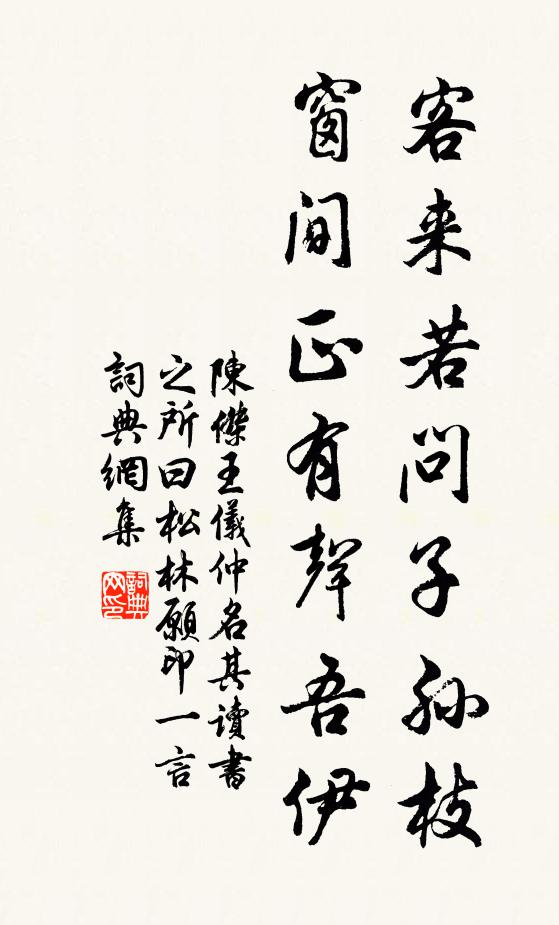 客来若问子孙枝
窗间正有聲吾伊
陳傑王儀仲名其讀書
之所曰松林願印一言
詞典網集
詞典网印